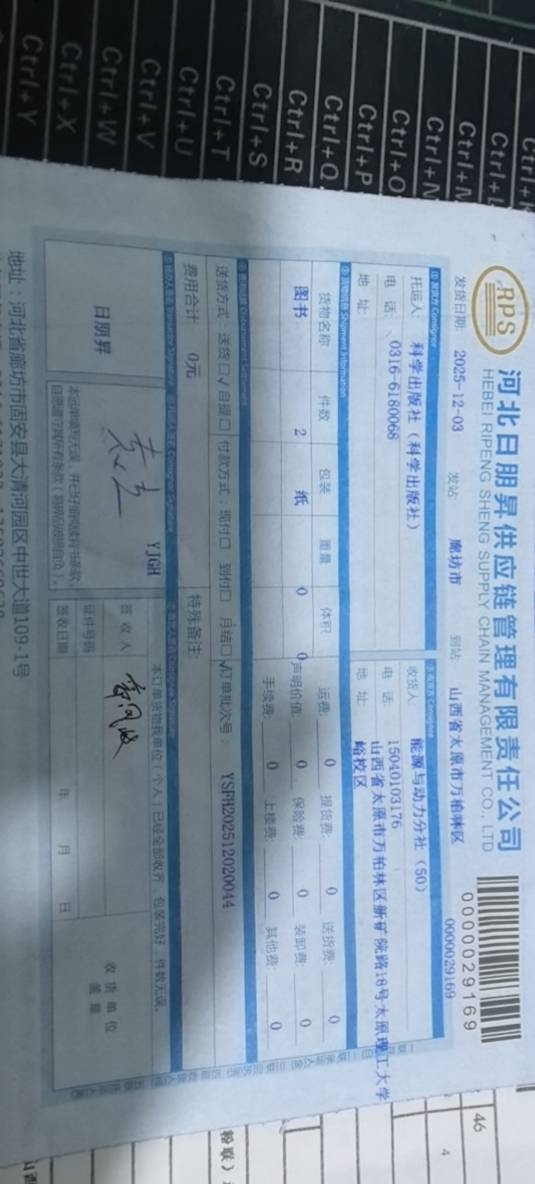 Ctrl+L
Ctrl+N
Ctrl+O
Ctrl+P
Ctrl+Q
Ctrl+R
Ctrl+S
Ctrl+T
Ctrl+U
Ctrl+V
Ctrl+W
Ctrl+X
Ctrl+Y
RPS
河北日朋昇供应链管理有限责任公司
HEBEI RIPENG SHENG SUPPLY CHAIN MANAGEMENT CO., LTD
0000029169
发货日期: 2025-12-03 发站: 廊坊市 到站: 山西省太原市万柏林区 0000029169
托运人: 科学出版社(科学出版社) 收货人: 能源与动力分社(50)
电 话: 0316-6180068 电 话: 15040103176
地 址: 地 址: 山西省太原市万柏林区新矿院路18号太原理工大学
峪校区
货物信息 Shipment Information
货物名称 件数 包装 重量 体积 运费: 0 提货费: 0 送货费: 0
图书 2 纸 0 0 声明价值: 0 保险费: 0 装卸费: 0
手续费: 0 上楼费: 0 其他费: 0
送货方式: 送货□√ 自提□ 付款方式: 现付□ 到付□ 月结□√ 订单批次号: YSPH202512020044
费用合计 0元 特殊备注:
日朋昇 YJGH
本订单货物我单位(个人)已经全部收齐,包装完好,件数无误。
签收人
证件号码
签收日期 年 月 日
收货单位
盖章
地址:河北省廊坊市固安县大清河园区中世大道109-1号
46
4